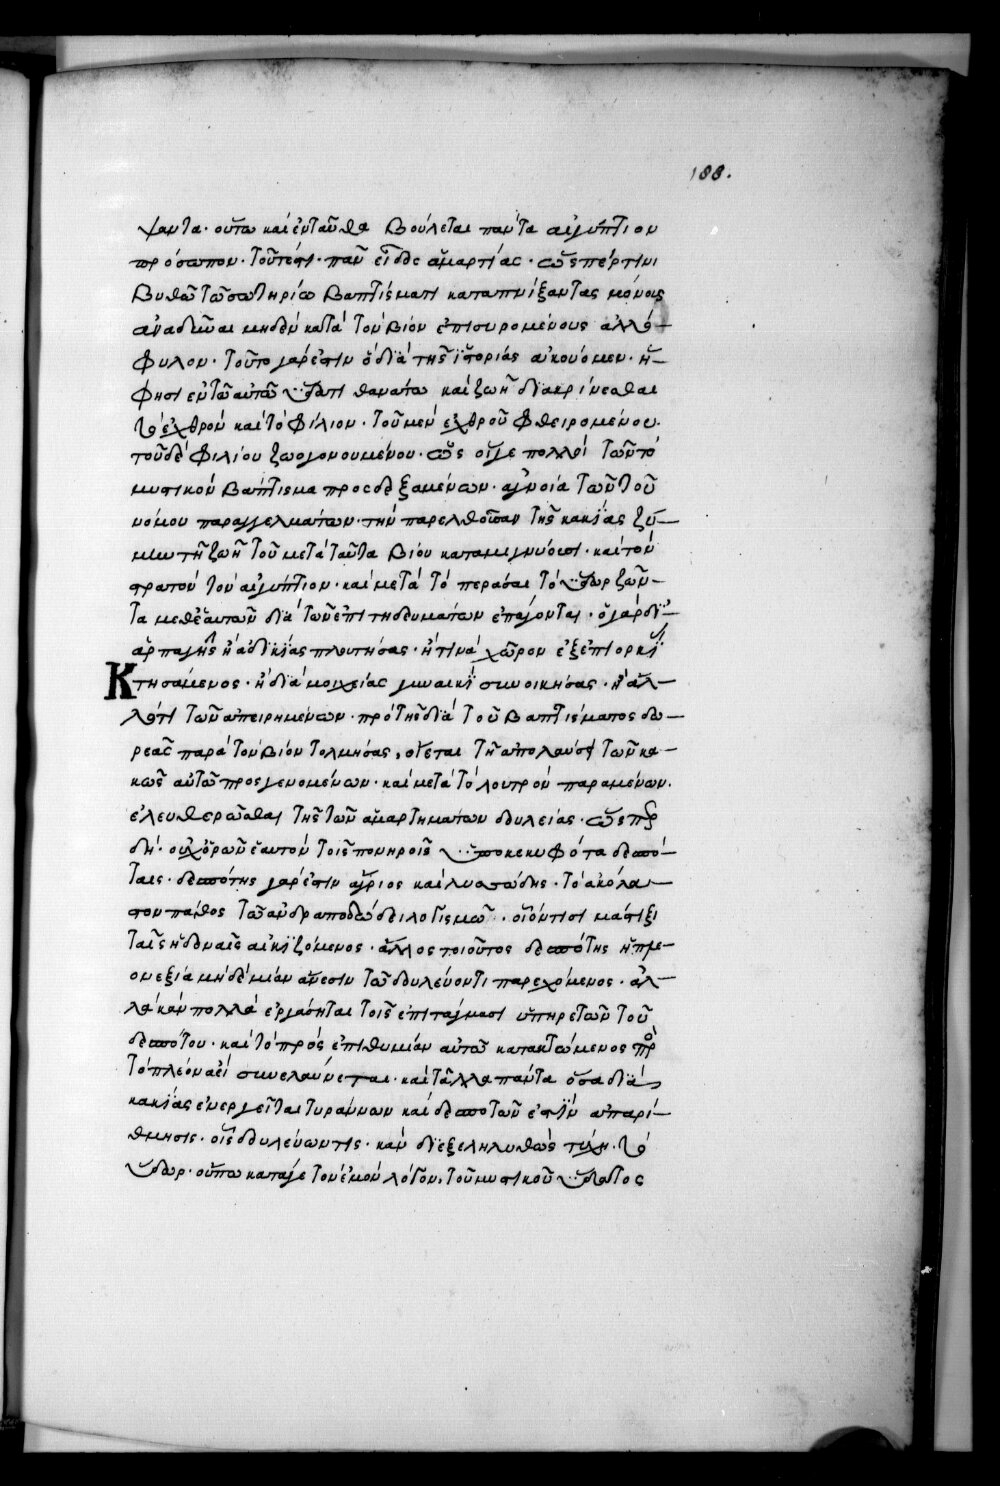 188.
ψαντα· οὕτω καὶ ἐνταῦθα βούλεται πάντα αἰγύπτιον
πρόσωπον· τουτέστι· πᾶν εἶδος ἁμαρτίας· ὥσπερ τινι
βυθῶ τῶ σωτηρίω βαπτίσματι καταπνίξαντας μόνους
ἀναδῦναι μηδὲν κατὰ τὸν βίον ἐπισυρομένους ἀλλό-
φυλον· τοῦτο γάρ ἐστιν ὃ διὰ τῆς ἱστορίας ἀκούομεν· ἥ
φησι ἐν τῶ αὐτῶ ὕδατι θανάτω καὶ ζωῆ διακρίνεσθαι
τὸ ἐχθρὸν καὶ τὸ φίλιον· τοῦ μὲν ἐχθροῦ φθειρομένου.
τοῦ δὲ φιλίου ζωογονουμένου· ὡς οἵγε πολλοὶ τῶν τὸ
μυστικὸν βάπτισμα προσδεξαμένων· ἀγνοία τῶν τοῦ
νόμου παραγγελμάτων· τὴν παρελθοῦσαν τῆς κακίας ζύ-
μην τῆ ζωῆ τοῦ μετὰ ταῦτα βίου καταμιγνύουσι· καὶ τὸν
στρατὸν τὸν αἰγύπτιον· καὶ μετὰ τὸ περάσαι τὸ ὕδωρ ζῶν-
τα μεθ' ἑαυτῶν διὰ τῶν ἐπιτηδευμάτων ἐπάγονται· ὁ γὰρ δι'
ἁρπαγῆς ἢ ἀδικίας πλουτήσας· ἤ τινα χῶρον ἐξ ἐπιορκί
Κτησάμενος· ἢ διὰ μοιχείας γυναικὶ συνοικήσας· ἢ ἄλ-
λό τι τῶν ἀπειρημένων· πρὸ τῆς διὰ τοῦ βαπτίσματος δω-
ρεᾶς παρὰ τὸν βίον τολμήσας, οἴεται τῆ ἀπολαύσει τῶν κα-
κῶς αὐτῶ προσγενομένων· καὶ μετὰ τὸ λουτρὸν παραμένων.
ἐλευθερῶσθαι τῆς τῶν ἁμαρτημάτων δουλείας· ὥσπερ
δὴ· οὐχ ὁρῶν ἑαυτὸν τοῖς πονηροῖς ὑποκεκυφότα δεσπό-
ταις· δεσπότης γάρ ἐστιν ἄγριος καὶ λυσσώδης· τὸ ἀκόλα-
στον πάθος τῶ ἀνδραποδώδει λογισμῶ· οἷόν τισι μάστιξι
ταῖς ἡδοναῖς αἰκιζόμενος· ἄλλος τοιοῦτος δεσπότης ἡ πλε-
ονεξία μηδεμίαν ἄνεσιν τῶ δουλεύοντι παρεχόμενος· ἀλ-
λὰ κἂν πολλὰ ἐργάσηται τοῖς ἐπιτάγμασι ὑπηρετῶν τοῦ
δεσπότου· καὶ τὸ πρὸς ἐπιθυμίαν αὐτῶ κατακτώμενος πρὸς
τὸ πλέον ἀεὶ συνελαύνεται· καὶ τἄλλα πάντα ὅσα διὰ
κακίας ἐνεργεῖται τυράννων καὶ δεσποτῶν ἐστὶν ἀπαρί-
θμησις· οἷς δουλεύων τις· κἂν διεξεληλυθὼς τύχη· τὸ
ὕδωρ· οὔπω κατάγε τὸν ἐμὸν λόγον, τοῦ μυστικοῦ ὕδατος